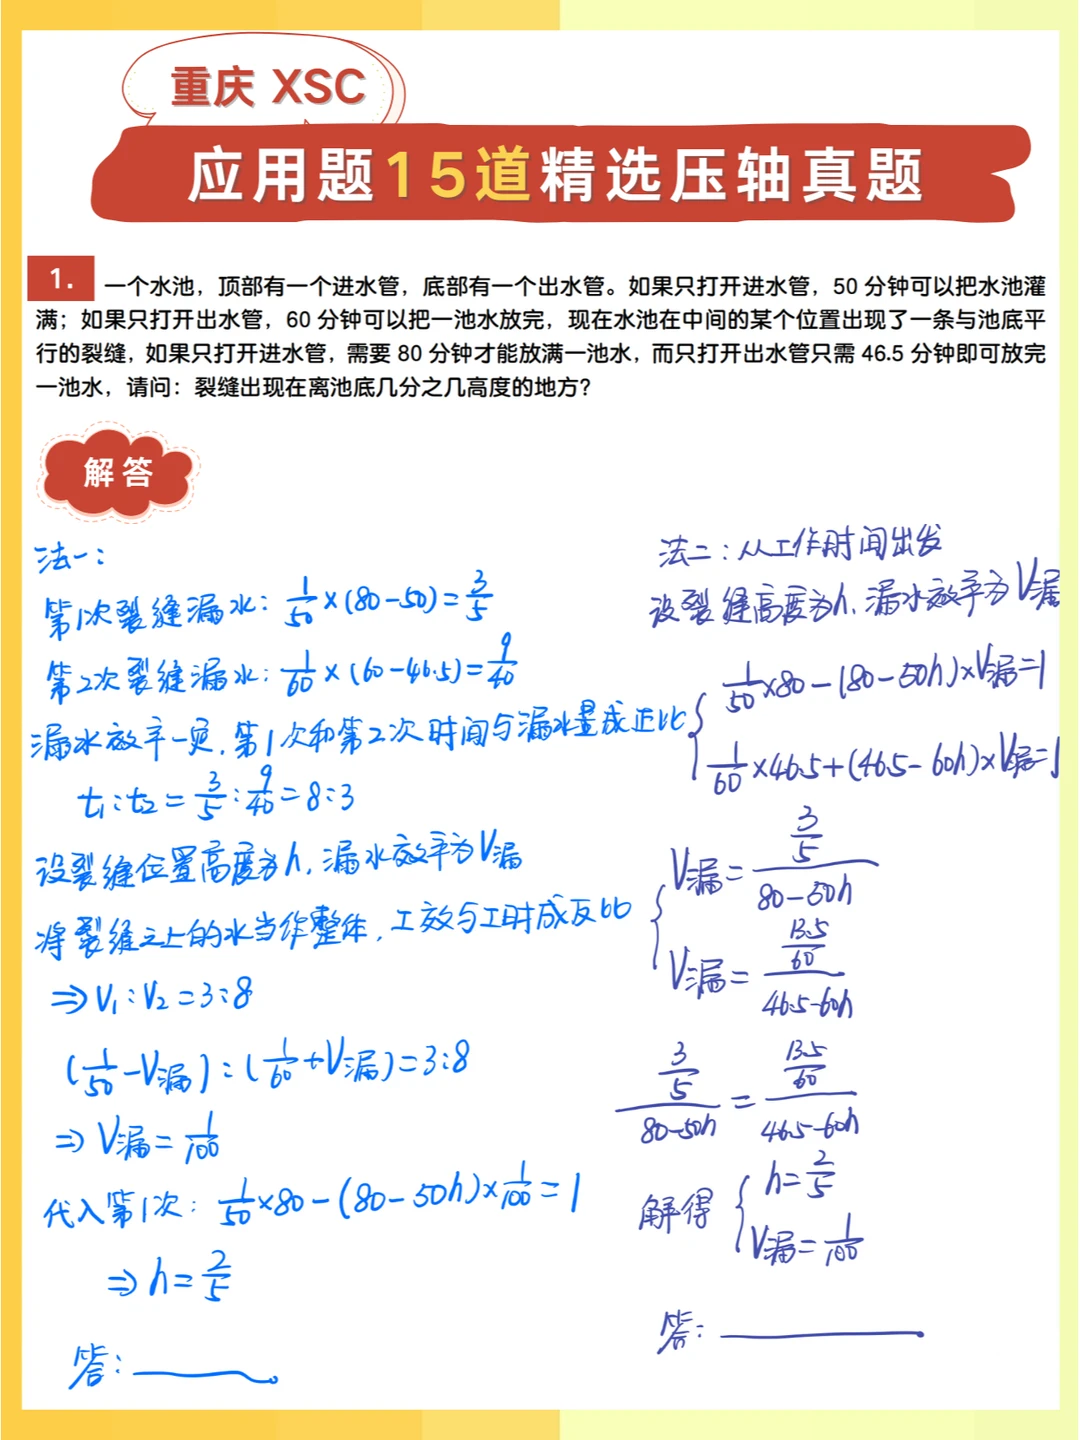 重庆 XSC
应用题15道精选压轴真题
1. 一个水池，顶部有一个进水管，底部有一个出水管。如果只打开进水管，50 分钟可以把水池灌
满；如果只打开出水管，60 分钟可以把一池水放完，现在水池在中间的某个位置出现了一条与池底平
行的裂缝，如果只打开进水管，需要 80 分钟才能放满一池水，而只打开出水管只需 46.5 分钟即可放完
一池水，请问：裂缝出现在离池底几分之几高度的地方？
解答
法一：
第1次裂缝漏水：1/50×(80-50)=3/5
第2次裂缝漏水：1/60×(60-46.5)=9/40
漏水效率一定，第1次和第2次时间与漏水量成正比
t₁:t₂=3/5:9/40=8:3
设裂缝位置高度为h，漏水效率为V漏
将裂缝之上的水当作整体，工效与工时成反比
⇒V₁:V₂=3:8
(1/50-V漏):(1/60+V漏)=3:8
⇒V漏=1/100
代入第1次：1/50×80-(80-50h)×1/100=1
⇒h=2/5
答：
法二：从工作时间出发
设裂缝高度为h，漏水效率为V漏
1/50×80-(80-50h)×V漏=1
1/60×46.5+(46.5-60h)×V漏=1
V漏=3/5/(80-50h)
V漏=13.5/60/(46.5-60h)
3/5/(80-50h)=13.5/60/(46.5-60h)
解得 h=2/5
V漏=1/100
答：